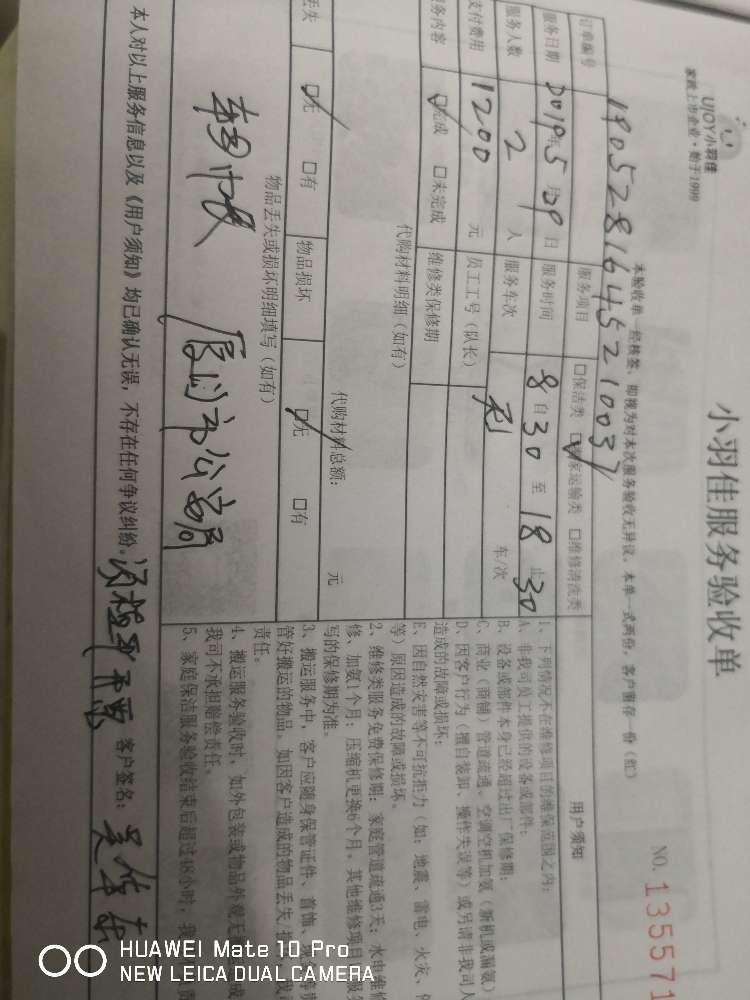 UJOY小羽佳
家政上市企业·始于1999
小羽佳服务验收单
NO. 135571
本验收单一经核签，即视为对本次服务验收无异议。本单一式两份，客户留存一份（红）
订单编号 1905281645210037
服务项目 □保洁类 ☑搬家运输类 □维修清洗类
服务日期 2019年5月29日 服务时间 8自30至18止30
服务人数 2人 服务车次 车/次
支付费用 1200元 员工工号（队长）
服务内容 ☑完成 □未完成 维修类保修期
代购材料明细（如有）
代购材料总额： 元
丢失 ☑无 □有 物品损坏 ☑无 □有
物品丢失或损坏明细填写（如有）
厦门市公安局
用户须知
1、下列情况不在维修项目的维保范围之内：
A、非我司员工提供的设备或部件；
B、设备或部件本身已经超过出厂保修期；
C、商业（商铺）管道疏通、空调空机加氨（新机或漏氨）
D、因客户行为（擅自装卸、操作失误等）或另请非我司人
造成的故障或损坏；
E、因自然灾害等不可抗拒力（如：地震、雷电、火灾、
等）原因造成的故障或损坏。
2、维修类服务免费保修期：家庭管道疏通3天；水电维修
修、加氨1个月；压缩机更换6个月。其他维修项目
写的保修期为准。
3、搬运服务中，客户应随身保管证件、首饰、
管好搬运的物品。如因客户造成的物品丢失、
责任。
4、搬运服务验收时，如外包装或物品外观无
我司不承担赔偿责任。
5、家庭保洁服务验收结束后超过48小时，我
本人对以上服务信息以及《用户须知》均已确认无误，不存在任何争议纠纷。
客户签名：
HUAWEI Mate 10 Pro
NEW LEICA DUAL CAMERA